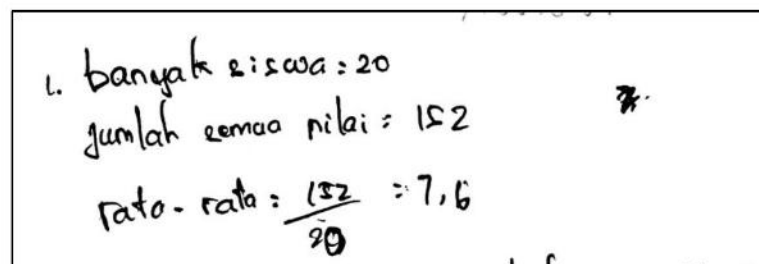 1. banyak siswa : 20
jumlah semua nilai : 152
rata - rata : 152/20 = 7,6